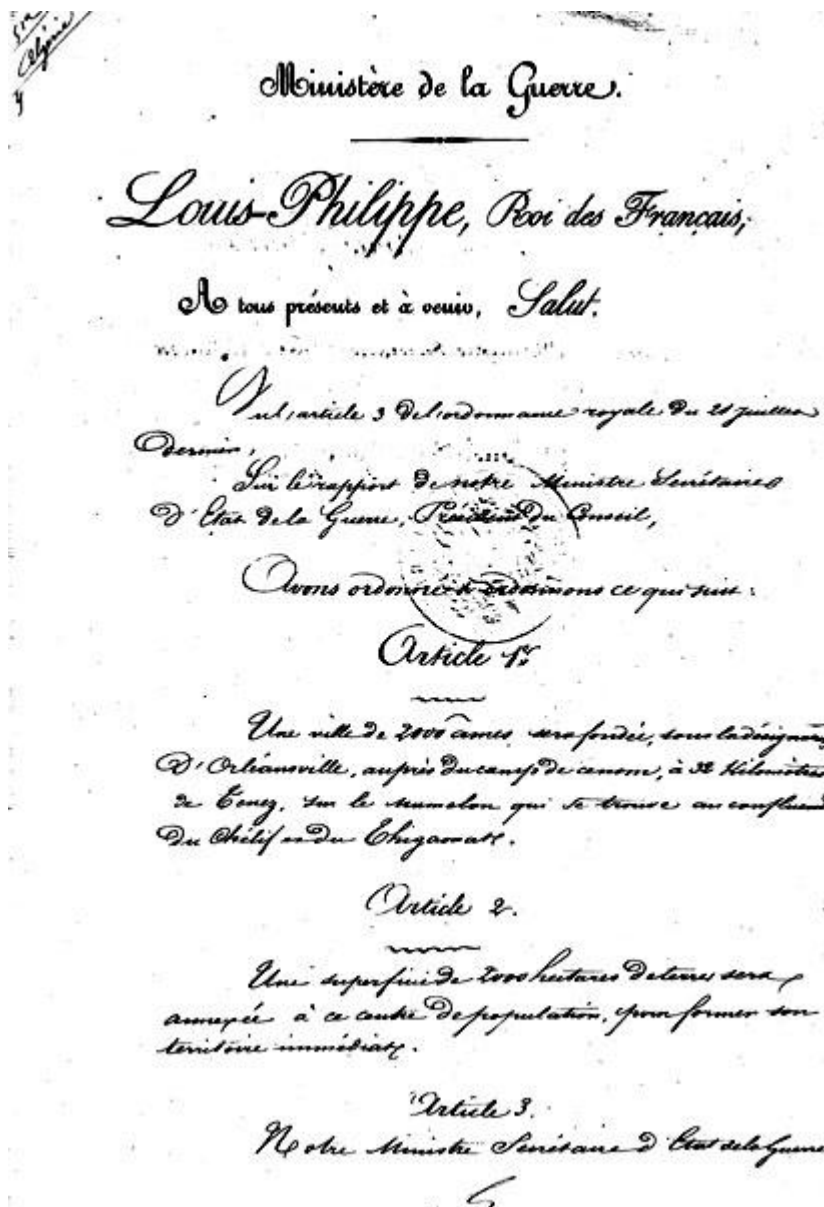 Algérie
Ministère de la Guerre.
Louis-Philippe, Roi des Français,
A tous présents et à venir, Salut.
Vu l'article 3 de l'ordonnance royale du 21 juillet
dernier,
Sur le rapport de notre Ministre Secrétaire
D'Etat de la Guerre, Président du Conseil,
Avons ordonné et ordonnons ce qui suit :
Article 1er
Une ville de 2000 âmes sera fondée, sous la désignation
D'Orléansville, auprès du camp de ce nom, à Kilomètres
de Tenez, sur le mamelon qui se trouve au confluent
du Chélif et du Thigaouat.
Article 2.
Une superficie de 2000 hectares de terres sera
annexée à ce centre de population, pour former son
territoire immédiat.
Article 3.
Notre Ministre Secrétaire d'Etat de la Guerre